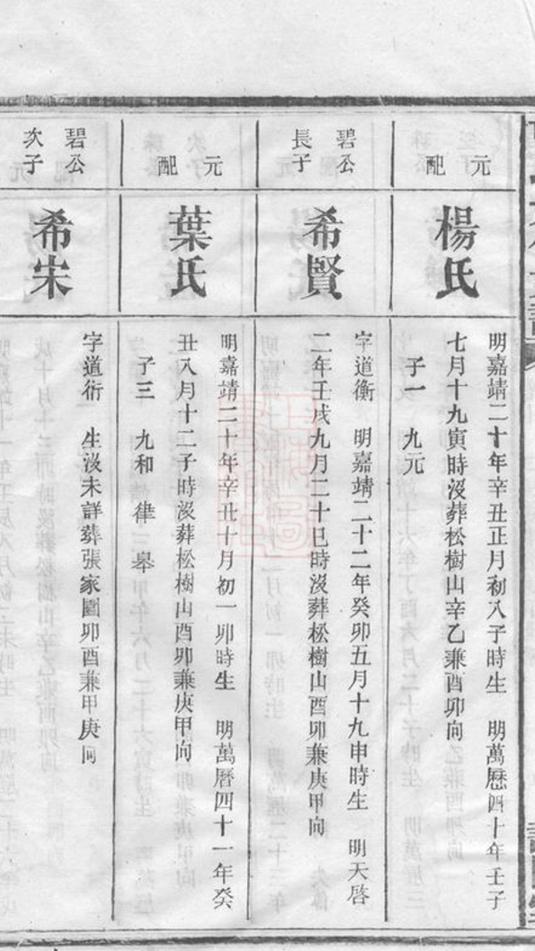 元配
楊氏
明嘉靖二十年辛丑正月初八子時生 明萬歷四十年壬子
七月十九寅時沒葬松樹山辛乙兼酉卯向
子一 九元
碧公
長子
希賢
字道衡 明嘉靖二十二年癸卯五月十九申時生 明天啓
二年壬戌九月二十巳時沒葬松樹山酉卯兼庚甲向
元配
葉氏
明嘉靖二十年辛丑十月初一卯時生 明萬曆四十一年癸
丑八月十二子時沒葬松樹山酉卯兼庚甲向
子三 九和 律 皋
碧公
次子
希宋
字道衍 生沒未詳葬張家園卯酉兼甲庚向